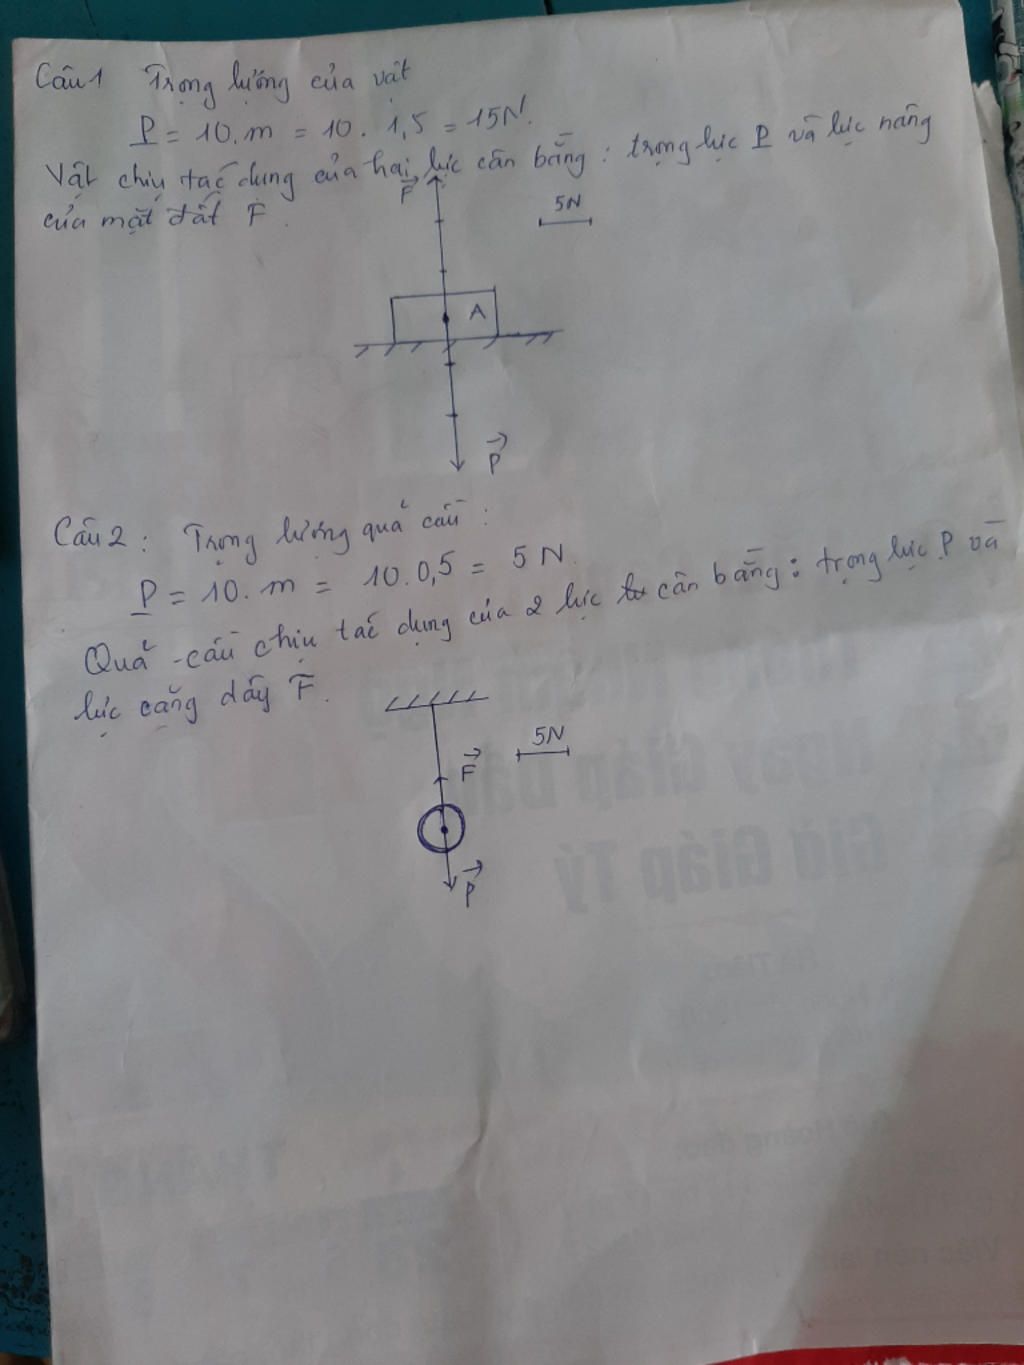 Câu 1 Trọng lượng của vật
P = 10.m = 10. 1,5 = 15N.
Vật chịu tác dụng của hai lực cân bằng: trọng lực P và lực nâng
của mặt đất F.
F
5N
A
P
Câu 2: Trọng lượng quả cầu:
P = 10. m = 10.0,5 = 5 N.
Quả cầu chịu tác dụng của 2 lực cân bằng: trọng lực P và
lực căng dây F.
5N
F
P
Ngày Giáp
Giờ Giáp Tý